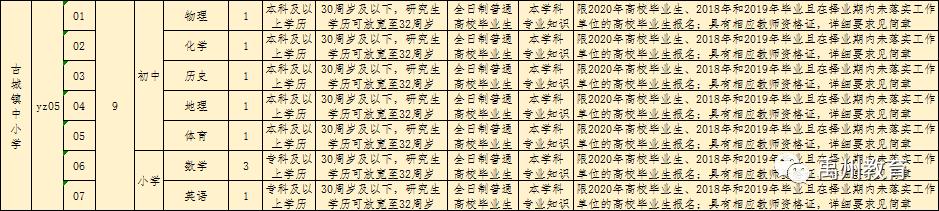 古城镇中小学
yz05
9
初中
小学
01 物理 1 本科及以上学历 30周岁及以下，研究生学历可放宽至32周岁 全日制普通高校毕业生 本学科专业知识 限2020年高校毕业生、2018年和2019年毕业且在择业期内未落实工作单位的高校毕业生报名；具有相应教师资格证，详细要求见简章
02 化学 1 本科及以上学历 30周岁及以下，研究生学历可放宽至32周岁 全日制普通高校毕业生 本学科专业知识 限2020年高校毕业生、2018年和2019年毕业且在择业期内未落实工作单位的高校毕业生报名；具有相应教师资格证，详细要求见简章
03 历史 1 本科及以上学历 30周岁及以下，研究生学历可放宽至32周岁 全日制普通高校毕业生 本学科专业知识 限2020年高校毕业生、2018年和2019年毕业且在择业期内未落实工作单位的高校毕业生报名；具有相应教师资格证，详细要求见简章
04 地理 1 本科及以上学历 30周岁及以下，研究生学历可放宽至32周岁 全日制普通高校毕业生 本学科专业知识 限2020年高校毕业生、2018年和2019年毕业且在择业期内未落实工作单位的高校毕业生报名；具有相应教师资格证，详细要求见简章
05 体育 1 本科及以上学历 30周岁及以下，研究生学历可放宽至32周岁 全日制普通高校毕业生 本学科专业知识 限2020年高校毕业生、2018年和2019年毕业且在择业期内未落实工作单位的高校毕业生报名；具有相应教师资格证，详细要求见简章
06 数学 3 专科及以上学历 30周岁及以下，研究生学历可放宽至32周岁 全日制普通高校毕业生 本学科专业知识 限2020年高校毕业生、2018年和2019年毕业且在择业期内未落实工作单位的高校毕业生报名；具有相应教师资格证，详细要求见简章
07 英语 1 专科及以上学历 30周岁及以下，研究生学历可放宽至32周岁 全日制普通高校毕业生 本学科专业知识 限2020年高校毕业生、2018年和2019年毕业且在择业期内未落实工作单位的高校毕业生报名；具有相应教师资格证，详细要求见简章
禹州教育